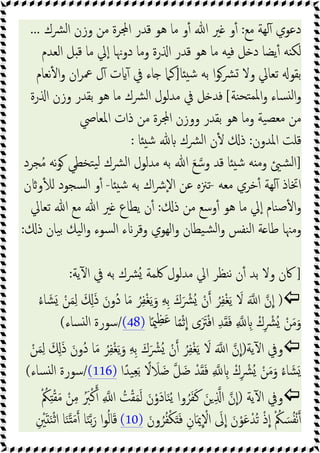 دعوي آلهة مع: أو غير الله أو ما هو قدر المجرة من وزن الشرك ...
لكنه أيضا دخل فيه ما هو قدر الذرة وما دونها إلي ما قبل العدم
بقوله تعالي ولا تشركوا به شيئا[كما جاء في آيات آل عمران والأنعام
والنساء والممتحنة] فدخل في مدلول الشرك ما هو بقدر وزن الذرة
من معصية وما هو بقدر ووزن المجرة من ذات المعاصي
قلت المدون: ذلك لأن الشرك بالله شيئا :
[الشيئ ومنه شيئا قد وسَّع الله به مدلول الشرك ليتخطي كونه مُجرد
اتخاذ آلهة أخري معه -تنزه عن الإشراك به شيئا- أو السجود للأوثان
والأصنام إلي ما هو أوسع من ذلك: أن يطاع غير الله مع الله تعالي
ومنها طاعة النفس والشيطان والهوي وقرناء السوء واليك بيان ذلك:
[كان ولا بد أن ننظر الي مدلول كلمة يُشرك به في الآية:
( إِنَّ اللَّهَ لَا يَغْفِرُ أَنْ يُشْرَكَ بِهِ وَيَغْفِرُ مَا دُونَ ذَلِكَ لِمَنْ يَشَاءُ
وَمَنْ يُشْرِكْ بِاللَّهِ فَقَدِ افْتَرَى إِثْمًا عَظِيمًا (48)/سورة النساء)
وفي الآية(إِنَّ اللَّهَ لَا يَغْفِرُ أَنْ يُشْرَكَ بِهِ وَيَغْفِرُ مَا دُونَ ذَلِكَ لِمَنْ
يَشَاءُ وَمَنْ يُشْرِكْ بِاللَّهِ فَقَدْ ضَلَّ ضَلَالًا بَعِيدًا (116)/سورة النساء)
وفي الآية (إِنَّ الَّذِينَ كَفَرُوا يُنَادَوْنَ لَمَقْتُ اللَّهِ أَكْبَرُ مِنْ مَقْتِكُمْ
أَنْفُسَكُمْ إِذْ تُدْعَوْنَ إِلَى الْإِيمَانِ فَتَكْفُرُونَ (10) قَالُوا رَبَّنَا أَمَتَّنَا اثْنَتَيْنِ